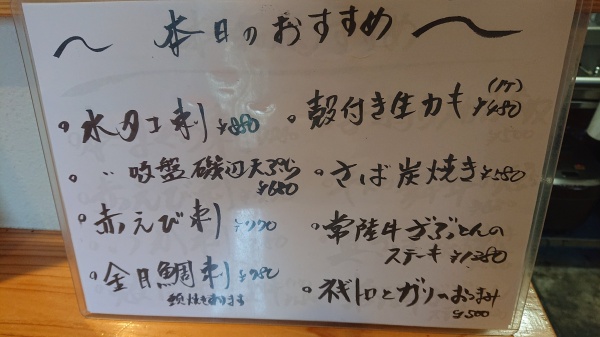 〜 本日のおすすめ 〜
。水タコ刺 ¥880
。〃 吸盤磯辺天ぷら
¥680
。赤えび刺 ¥770
。金目鯛刺 ¥980
頭焼きあります
。殻付き生カキ (1ケ) ¥480
。さば炭焼き ¥580
。常陸牛ざぶとんの
ステーキ ¥1,280
。ネギトロとガリのおつまみ
¥500